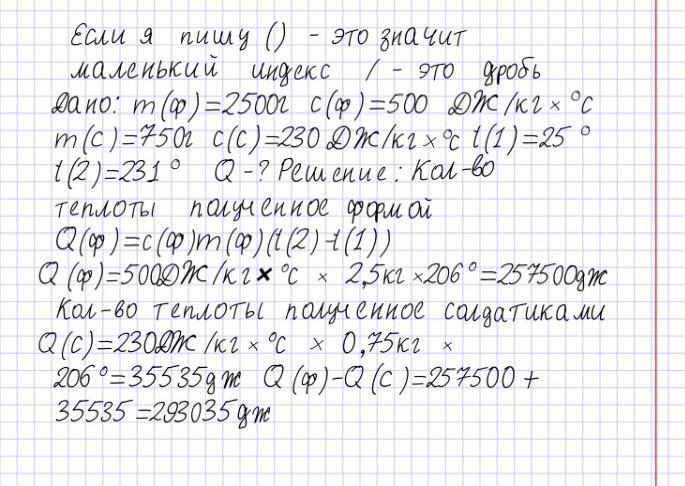 Если я пишу () - это значит
маленький индекс / - это дробь
Дано: m(ф)=2500г c(ф)=500 ДЖ/кг × °c
m(c)=750г c(c)=230 ДЖ/кг × °c t(1)=25 °
t(2)=231° Q-? Решение: Кол-во
теплоты полученное формой
Q(ф)=c(ф)m(ф)(t(2)-t(1))
Q(ф)=500ДЖ/кг × °c × 2,5кг ×206°=257500дж
Кол-во теплоты полученное солдатиками
Q(c)=230ДЖ/кг × °c × 0,75кг ×
206°=35535дж Q(ф)-Q(c)=257500+
35535=293035дж